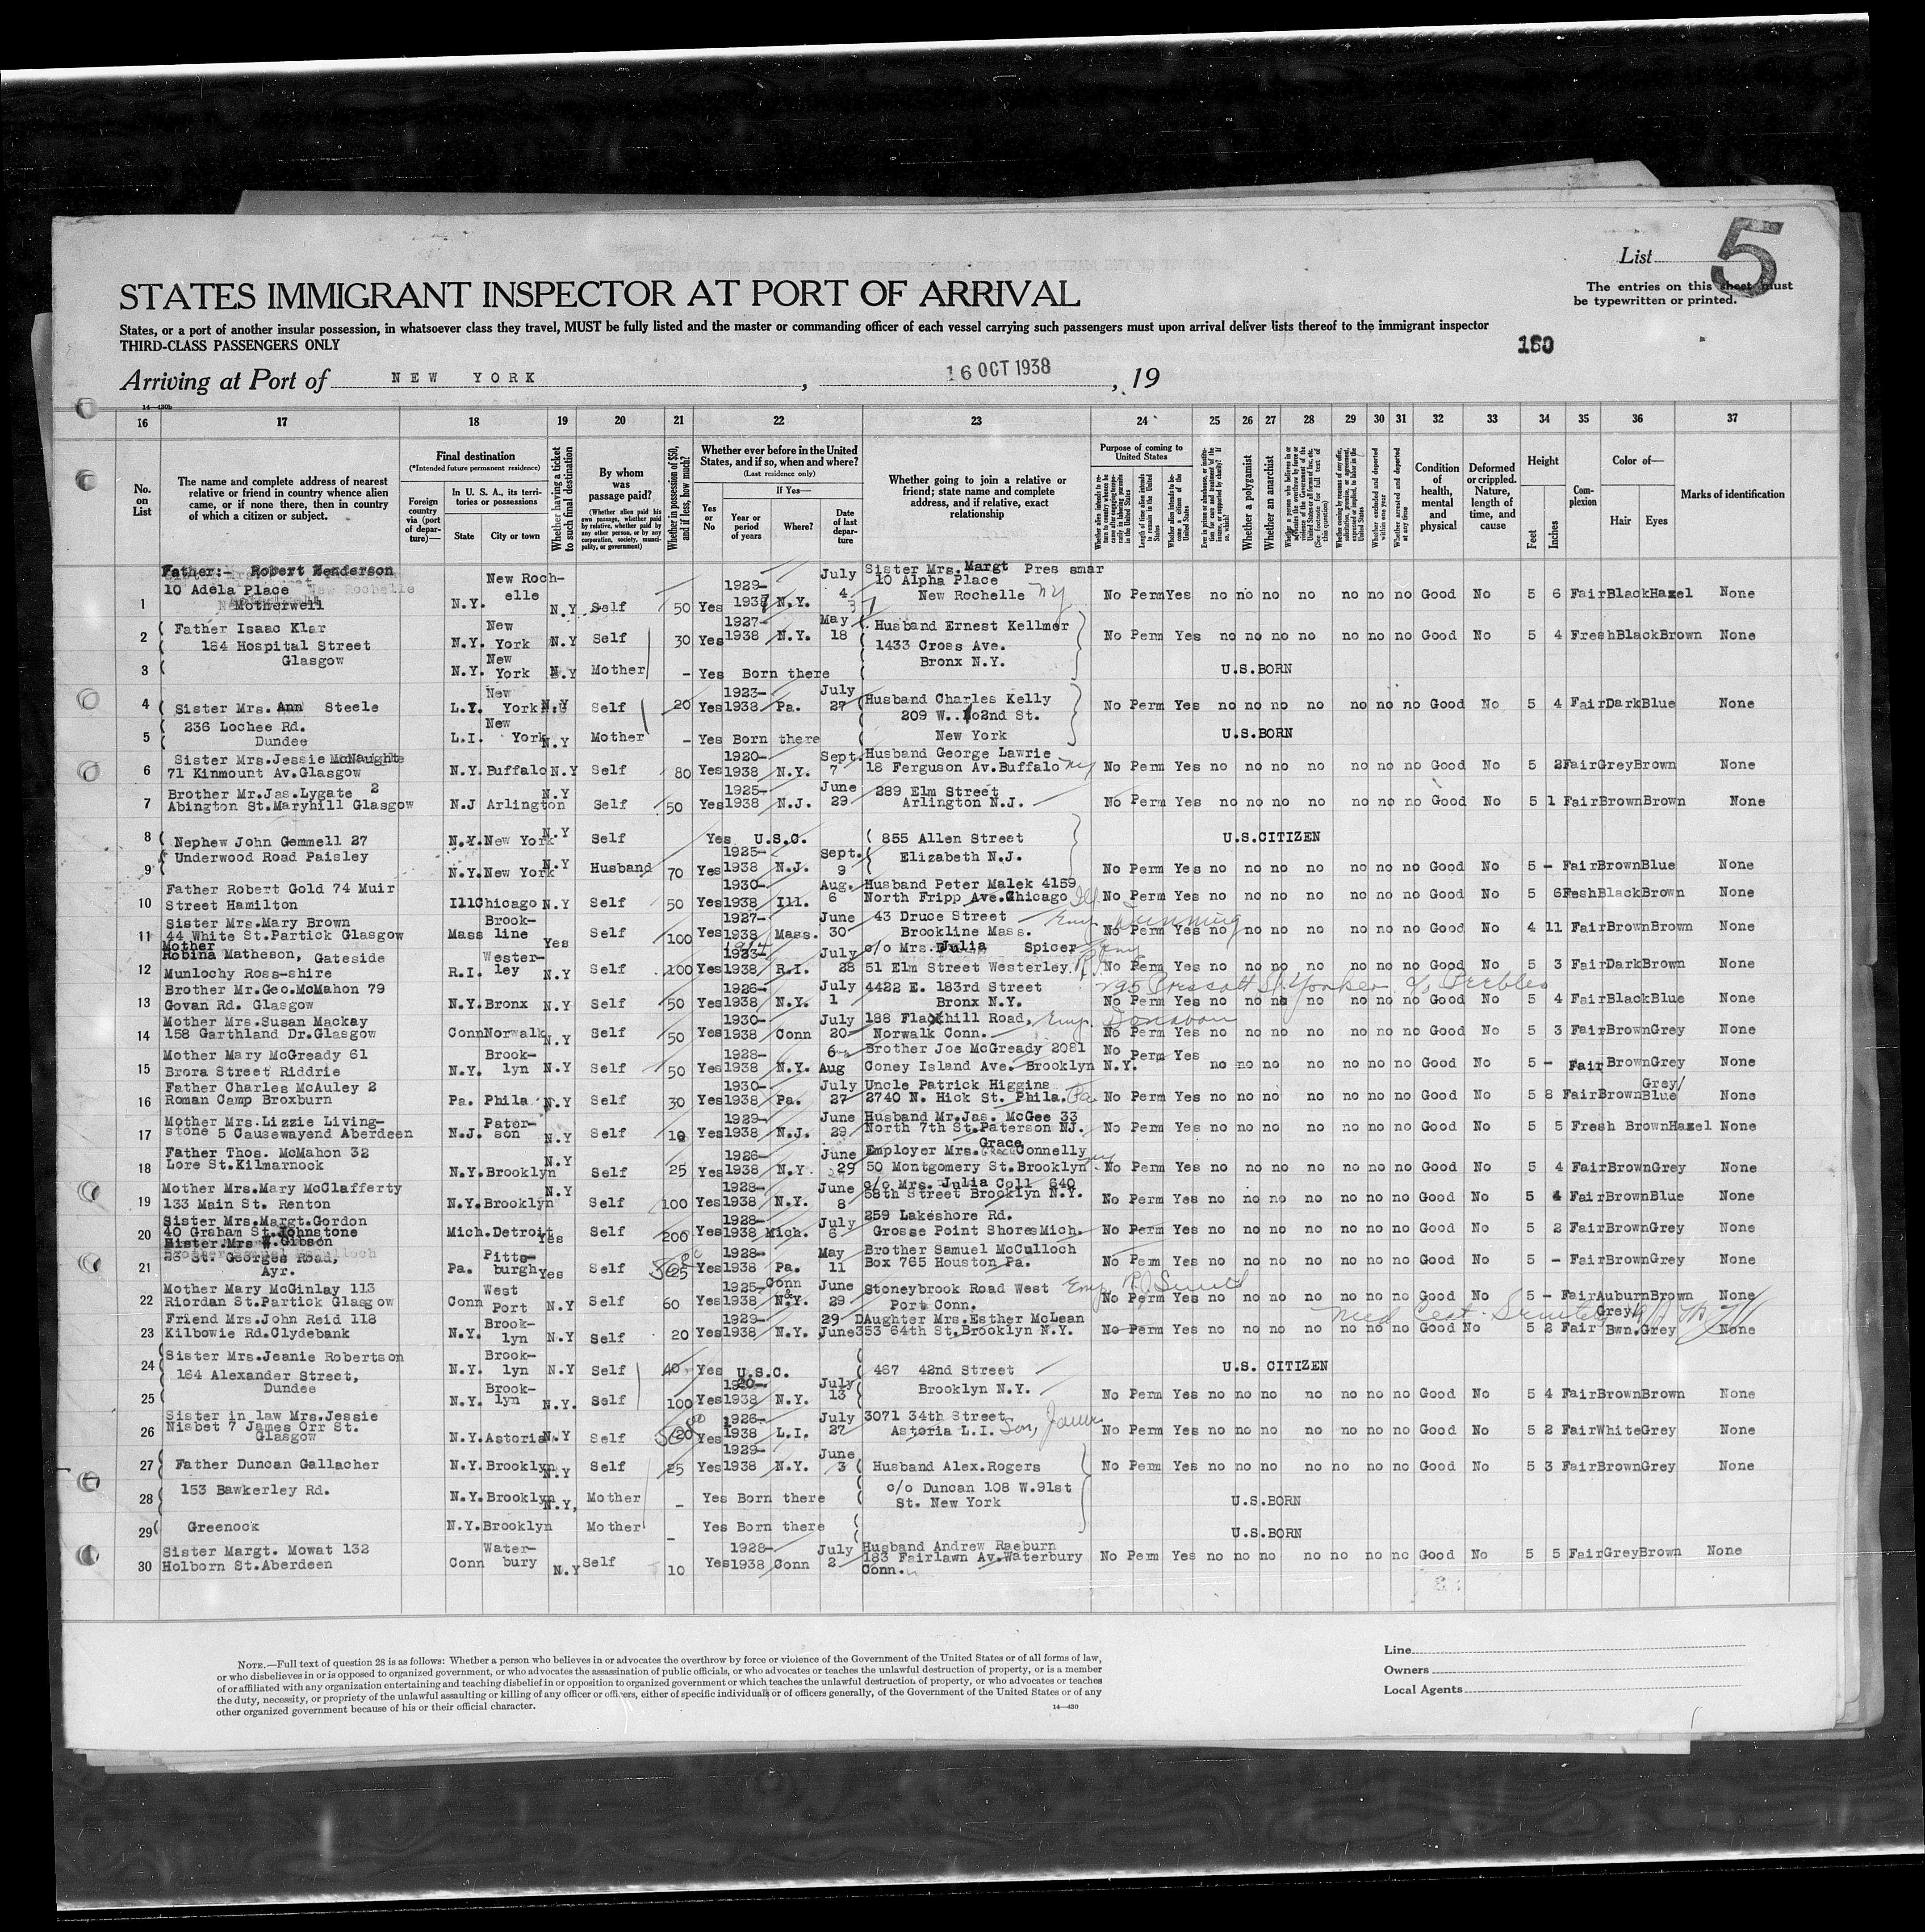 List 5
The entries on this sheet must
be typewritten or printed.
STATES IMMIGRANT INSPECTOR AT PORT OF ARRIVAL
States, or a port of another insular possession, in whatsoever class they travel, MUST be fully listed and the master or commanding officer of each vessel carrying such passengers must upon arrival deliver lists thereof to the immigrant inspector
THIRD-CLASS PASSENGERS ONLY
180
Arriving at Port of NEW YORK, 16 OCT 1938, 19
14—430b
16 17 18 19 20 21 22 23 24 25 26 27 28 29 30 31 32 33 34 35 36 37
No. on List
The name and complete address of nearest relative or friend in country whence alien came, or if none there, then in country of which a citizen or subject.
Final destination
(*Intended future permanent residence)
Foreign country via (port of departure)—
In U. S. A., its territories or possessions
State City or town
Whether having a ticket to such final destination
By whom was passage paid?
(Whether alien paid his own passage, whether paid by relative, whether paid by any other person, or by any corporation, society, municipality, or government)
Whether in possession of $50, and if less, how much?
Whether ever before in the United States, and if so, when and where?
(Last residence only)
Yes or No
If Yes—
Year or period of years Where? Date of last departure
Whether going to join a relative or friend; state name and complete address, and if relative, exact relationship
Purpose of coming to United States
Length of time alien intends to remain in the United States
Whether alien intends to become a citizen of the United States
Whether a polygamist
Whether an anarchist
Whether arrested and deported at any time
Condition of health, mental and physical
Deformed or crippled. Nature, length of time, and cause
Height
Feet Inches
Complexion
Color of—
Hair Eyes
Marks of identification
1 Father:- Robert Henderson 10 Adela Place Motherwell N.Y. New Rochelle N.Y Self 50 Yes 1929-1937 N.Y. July Sister Mrs. Margt 10 Alpha Place New Rochelle NY No Perm Yes no no no no no no no Good No 5 6 Fair Black Hazel None
2 Father Isaac Klar 184 Hospital Street Glasgow N.Y. New York N.Y Self 30 Yes 1927-1938 N.Y. May 18 Husband Ernest Kellmer 1433 Cross Ave. Bronx N.Y. No Perm Yes no no no no no no no Good No 5 4 Fresh Black Brown None
3 N.Y. New York N.Y Mother - Yes Born there U.S.BORN
4 Sister Mrs. Ann Steele 236 Lochee Rd. Dundee L.I. New York N.Y Self 20 Yes 1923-1938 Pa. July 27 Husband Charles Kelly 209 W. 102nd St. New York No Perm Yes no no no no no no no Good No 5 4 Fair Dark Blue None
5 L.I. New York N.Y Mother - Yes Born there U.S.BORN
6 Sister Mrs.Jessie McNaughte 71 Kinmount Av.Glasgow N.Y. Buffalo N.Y Self 80 Yes 1920-1938 N.Y. Sept. 7 Husband George Lawrie 18 Ferguson Av.Buffalo NY No Perm Yes no no no no no no no Good No 5 2 Fair Grey Brown None
7 Brother Mr.Jas.Lygate 2 Abington St.Maryhill Glasgow N.J Arlington N.Y Self 50 Yes 1925-1938 N.J. June 29 289 Elm Street Arlington N.J. No Perm Yes no no no no no no no Good No 5 1 Fair Brown Brown None
8 Nephew John Gemmell 27 Underwood Road Paisley N.Y. New York N.Y Self Yes U.S.C. 855 Allen Street Elizabeth N.J. U.S.CITIZEN
9 N.Y. New York N.Y Husband 70 Yes 1925-1938 N.J. Sept. 9 No Perm Yes no no no no no no no Good No 5 - Fair Brown Blue None
10 Father Robert Gold 74 Muir Street Hamilton Ill Chicago N.Y Self 50 Yes 1930-1938 Ill. Aug. 6 Husband Peter Malek 4159 North Fripp Ave.Chicago Ill No Perm Yes no no no no no no no Good No 5 6 Fresh Black Brown None
11 Sister Mrs.Mary Brown 44 White St.Partick Glasgow Mass Brookline Yes Self 100 Yes 1927-1938 Mass. June 30 43 Druce Street Brookline Mass. Emp No Perm Yes no no no no no no no Good No 4 11 Fair Brown Brown None
12 Mother Robina Matheson, Gateside Munlochy Ross-shire R.I. Westerley N.Y Self 100 Yes 1938 R.I. July 28 c/o Mrs. Julia Spicer 51 Elm Street Westerley R.I. No Perm Yes no no no no no no no Good No 5 3 Fair Dark Brown None
13 Brother Mr.Geo.McMahon 79 Govan Rd. Glasgow N.Y. Bronx N.Y Self 50 Yes 1926-1938 N.Y. July 1 4422 E. 183rd Street Bronx N.Y. 295 Prescott St Yonkers c/o Peebles No Perm Yes no no no no no no no Good No 5 4 Fair Black Blue None
14 Mother Mrs.Susan Mackay 158 Garthland Dr.Glasgow Conn Norwalk N.Y Self 50 Yes 1930-1938 Conn July 20 188 Flaxhill Road, Norwalk Conn. Emp Donavan No Perm Yes no no no no no no no Good No 5 3 Fair Brown Grey None
15 Mother Mary McGready 61 Brora Street Riddrie N.Y. Brooklyn N.Y Self 50 Yes 1928-1938 N.Y. 6 Aug Brother Joe McGready 2081 Coney Island Ave. Brooklyn N.Y. No Perm Yes no no no no no no no Good No 5 - Fair Brown Grey None
16 Father Charles McAuley 2 Roman Camp Broxburn Pa. Phila. N.Y Self 30 Yes 1930-1938 Pa. July 27 Uncle Patrick Higgins 2740 N. Hick St. Phila. Pa No Perm Yes no no no no no no no Good No 5 8 Fair Brown Grey/Blue None
17 Mother Mrs.Lizzie Livingstone 5 Causewayend Aberdeen N.J. Paterson N.Y Self 10 Yes 1929-1938 N.J. June 29 Husband Mr.Jas. McGee 33 North 7th St.Paterson NJ. No Perm Yes no no no no no no no Good No 5 5 Fresh Brown Hazel None
18 Father Thos. McMahon 32 Lore St.Kilmarnock N.Y. Brooklyn N.Y Self 25 Yes 1926-1938 N.Y. June 29 Employer Mrs. Grace Connelly 50 Montgomery St.Brooklyn NY No Perm Yes no no no no no no no Good No 5 4 Fair Brown Grey None
19 Mother Mrs.Mary McClafferty 133 Main St. Renton N.Y. Brooklyn N.Y Self 100 Yes 1928-1938 N.Y. June 8 c/o Mrs. Julia Coll 640 58th Street Brooklyn N.Y. No Perm Yes no no no no no no no Good No 5 4 Fair Brown Blue None
20 Sister Mrs.Margt.Gordon 40 Graham St.Johnstone Mich. Detroit Yes Self 200 Yes 1928-1938 Mich. July 6 259 Lakeshore Rd. Grosse Point Shores Mich. No Perm Yes no no no no no no no Good No 5 2 Fair Brown Grey None
21 Sister Mrs W.Gibson 23 St. Georges Road, Ayr. Pa. Pittsburgh Yes Self 25 Yes 1928-1938 Pa. May 11 Brother Samuel McCulloch Box 765 Houston Pa. No Perm Yes no no no no no no no Good No 5 - Fair Brown Grey None
22 Mother Mary McGinlay 113 Riordan St.Partick Glasgow Conn West Port N.Y Self 60 Yes 1925-1938 Conn & N.Y. June 29 Stoneybrook Road West Port Conn. Emp No Perm Yes no no no no no no no Good No 5 - Fair Auburn Brown None
23 Friend Mrs.John Reid 118 Kilbowie Rd.Clydebank N.Y. Brooklyn N.Y Self 20 Yes 1929-1938 N.Y. 29 June Daughter Mrs.Esther McLean 353 64th St.Brooklyn N.Y. Med Cert. Senility No Perm Yes no no no no no no no Good No 5 2 Fair Grey Bwn. Grey None
24 Sister Mrs.Jeanie Robertson 164 Alexander Street, Dundee N.Y. Brooklyn N.Y Self 40 Yes U.S.C. 467 42nd Street Brooklyn N.Y. U.S. CITIZEN
25 N.Y. Brooklyn N.Y. Self 100 Yes 1938 N.Y. July 13 No Perm Yes no no no no no no no Good No 5 4 Fair Brown Brown None
26 Sister in law Mrs.Jessie Nisbet 7 James Orr St. Glasgow N.Y. Astoria N.Y Self 20 Yes 1926-1938 L.I. July 27 3071 34th Street Astoria L.I. Son, James No Perm Yes no no no no no no no Good No 5 2 Fair White Grey None
27 Father Duncan Gallacher 153 Bawkerley Rd. N.Y. Brooklyn N.Y Self 25 Yes 1929-1938 N.Y. June 3 Husband Alex.Rogers c/o Duncan 108 W.91st St. New York No Perm Yes no no no no no no no Good No 5 3 Fair Brown Grey None
28 N.Y. Brooklyn N.Y, Mother - Yes Born there U.S.BORN
29 Greenock N.Y. Brooklyn Mother - Yes Born there U.S.BORN
30 Sister Margt. Mowat 132 Holborn St.Aberdeen Conn Waterbury N.Y Self 10 Yes 1928-1938 Conn July 2 Husband Andrew Raeburn 183 Fairlawn Av.Waterbury Conn. No Perm Yes no no no no no no no Good No 5 5 Fair Grey Brown None
NOTE.—Full text of question 28 is as follows: Whether a person who believes in or advocates the overthrow by force or violence of the Government of the United States or of all forms of law,
or who disbelieves in or is opposed to organized government, or who advocates the assassination of public officials, or who advocates or teaches the unlawful destruction of property, or is a member
of or affiliated with any organization entertaining and teaching disbelief in or opposition to organized government or which teaches the unlawful destruction of property, or who advocates or teaches
the duty, necessity, or propriety of the unlawful assaulting or killing of any officer or officers, either of specific individuals or of officers generally, of the Government of the United States or of any
other organized government because of his or their official character.
14—430
Line
Owners
Local Agents